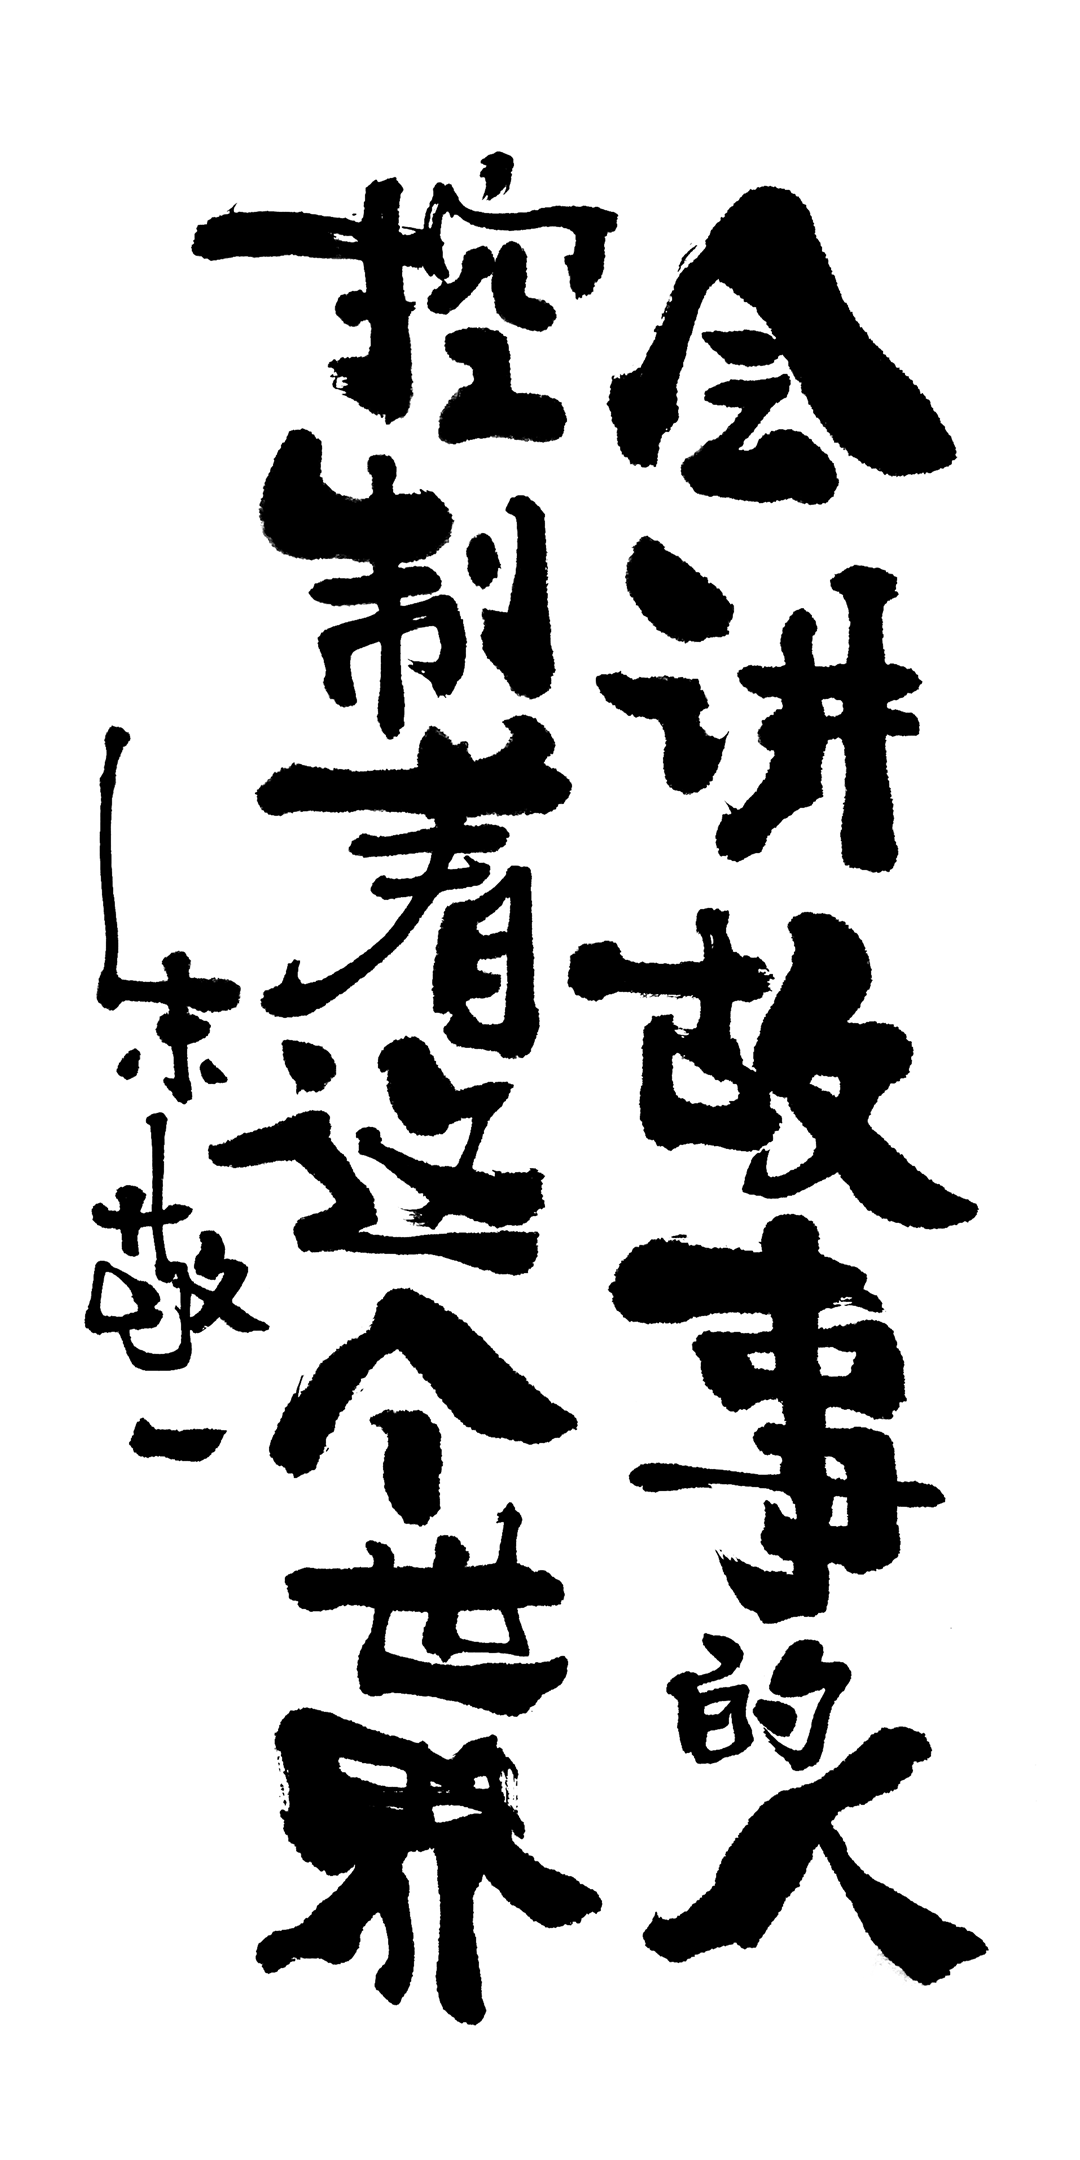 会讲故事的人
控制着这个世界
朱敬一